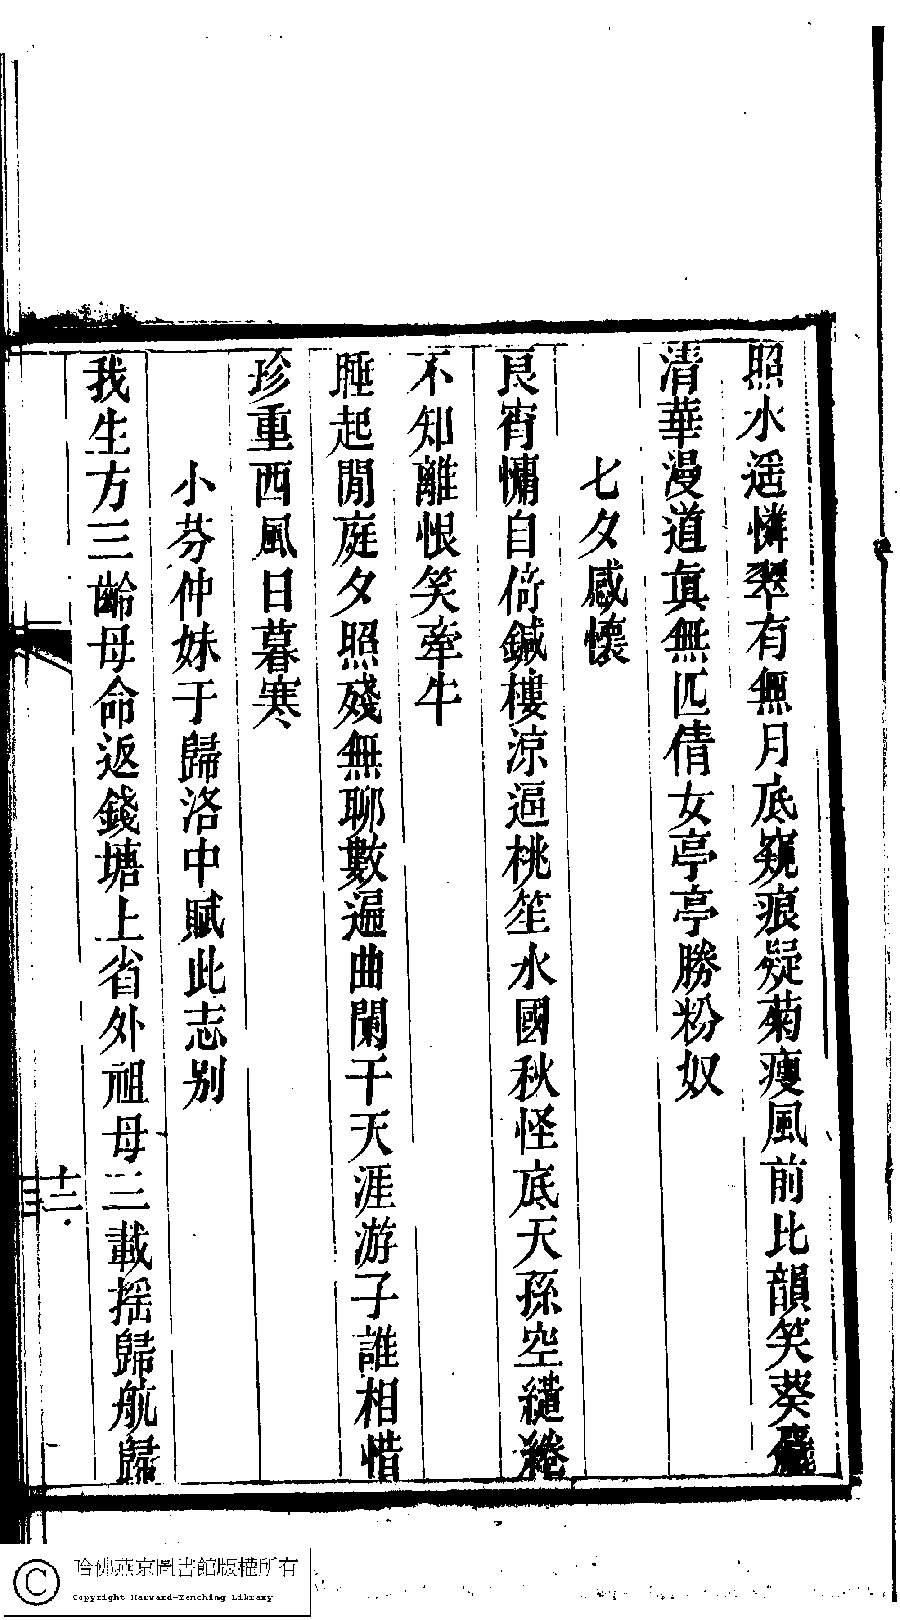 照水遥憐翠有無月底窺痕疑菊瘦風前比韻笑葵麤
清華漫道眞無匹倩女亭亭勝粉奴
七夕感懷
良宵慵自倚鍼樓涼逼桃笙水國秋怪底天孫空繾綣
不知離恨笑牽牛
睡起閒庭夕照殘無聊數遍曲闌干天涯游子誰相惜
珍重西風日暮寒
小芬仲妹于歸洛中賦此志别
我生方三齡母命返錢塘上省外祖母三載摇歸航歸
十二
哈佛燕京圖書館版權所有
Copyright Harvard-Yenching Library